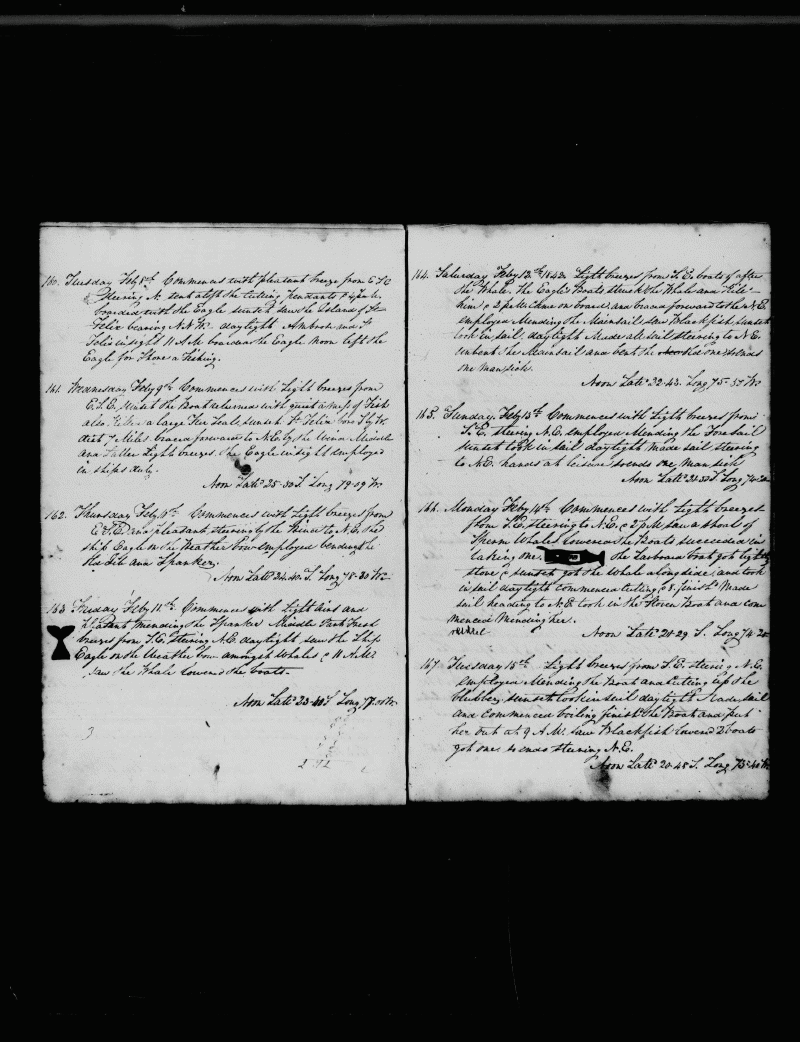 160. Tuesday Feby 8th. Commences with pleasant breeze from E.S.E
Steering N. sent aloft the cutting pendants &
boarded with the Eagle sunset saw the Island of St
Felix bearing N.N.W. daylight Ambrose and F
Felix in sight 11 A.M. boarded the Eagle Noon left the
Eagle for Shore a Fishing.
161. Wednesday Feby 9th. Commences with Light breezes from
E.S.E. sunset the Boat returned with quite a mess of Fish
also a large Fur Seal, sunset St Felix bore S by W.
dist 7 Miles braced forward to N.E. by the Wind Middle
and Latter Light breezes the Eagle in sight employed
in ships duty.
Noon Latd 25-30 S Long 79-09 W.
162. Thursday Feby 10th. Commences with Light breezes from
E.S.E. and pleasant, steering by the Wind to N.E. the
ship Eagle on the Weather bow employed bending the
old Jib and Spanker.
Noon Latd 24-40 S. Long 78-30 W.
163 Friday Feby 11th. Commences with Light airs and
pleasant Mending the Spanker Middle Part Fresh
breezes from S.E. steering N.E. daylight saw the Ship
Eagle on the Weather bow amongst Whales @ 11 A.M.
saw the Whale lowered the boats.
Noon Latd 23-40 S Long 77.00 W.
164. Saturday Feby 12th. 1842 Light breezes from S.E. boats off after
the Whale. The Eagle's boats struck the Whale and kill
him @ 2 P.M. Came on board and braced forward to the N.E.
employed Mending the Mainsail saw Blackfish, sunset
took in sail, daylight Made all sail steering to N.E
unbent the Mainsail and bent the old one so ends
one man sick.
Noon Latd 22-43. Long 75-57 W.
165. Sunday. Feby 13th. Commences with Light breezes from
S.E. steering N.E. employed Mending the Foresail
sunset took in sail daylight made sail steering
to N.E. hands at leisure so ends one Man sick
Noon Latd Long
166. Monday Feby 14th. Commences with Light breezes
from S.E. steering to N.E. @ 2 P.M. saw a shoal of
Sperm Whales lowered the Boats succeeded in
taking one. the Larboard boat got lightly
stove @ sunset got the Whale alongside, and took
in sail daylight commenced cutting, @ 8. finish'd Made
sail heading to N.E. took in the Stoven Boat and com
menced Mending her.
Noon Latd 20-29 S. Long 74-25
167 Tuesday 15th. Light breezes from S.E. steering N.E.
employed Mending the Boat and cutting up the
blubber, sunset took in sail daylight Made sail
and commenced boiling finish'd the Boat and put
her out at 9 A.M. saw Blackfish lowered 2 boats
got one so ends steering N.E.
Noon Latd 20-45 S. Long 73-40 W.